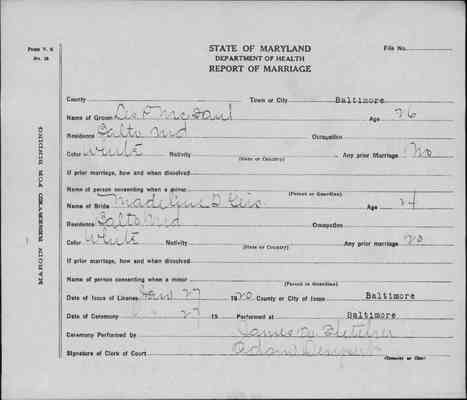 Form V. S.
No. 18
STATE OF MARYLAND
DEPARTMENT OF HEALTH
REPORT OF MARRIAGE
File No.
MARGIN RESERVED FOR BINDING
County Town or City Baltimore
Name of Groom Leo F McFaul Age 26
Residence Balto Md Occupation
Color White Nativity (State or Country) Any prior Marriage No
If prior marriage, how and when dissolved
Name of person consenting when a minor (Parent or Guardian)
Name of Bride Madeline D Age 24
Residence Balto Md Occupation
Color White Nativity (State or Country) Any prior marriage no
If prior marriage, how and when dissolved
Name of person consenting when a minor (Parent or Guardian)
Date of Issue of License Jan 27 1920 County or City of Issue Baltimore
Date of Ceremony 27 19 Performed at Baltimore
Ceremony Performed by James D. Fletcher
Signature of Clerk of Court Adam